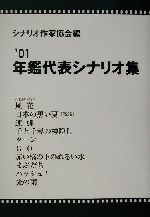 シナリオ作家協会編
'01
年鑑代表シナリオ集
風花
日本の黒い夏
連弾
千と千尋の神隠し
ターン
GO
赤い橋の下のぬるい水
まぶだち
ハッシュ!
光の雨